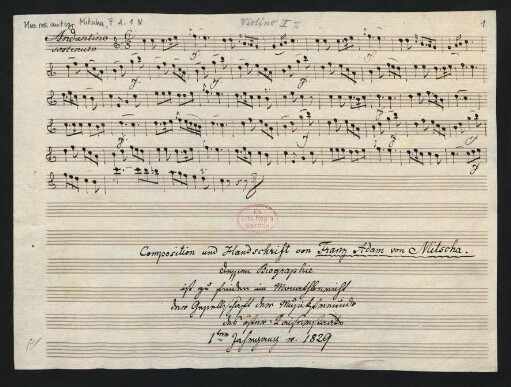 Mus. ms. autogr. Mitscha, F. A. 1 N
Violino I
1
Andantino
sostenuto
Composition und Handschrift von Franz Adam von Mitscha.
dessen Biographie
ist zu finden im Monathbericht
der Gesellschaft der Musikfreunde
des österr. Kaiserstaats
1ter Jahrgang v. 1829